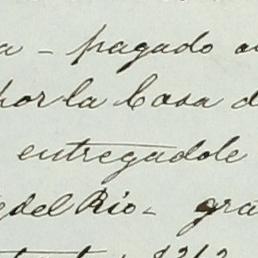 a - pagado
por la Casa d
entregadole
del Rio - gra